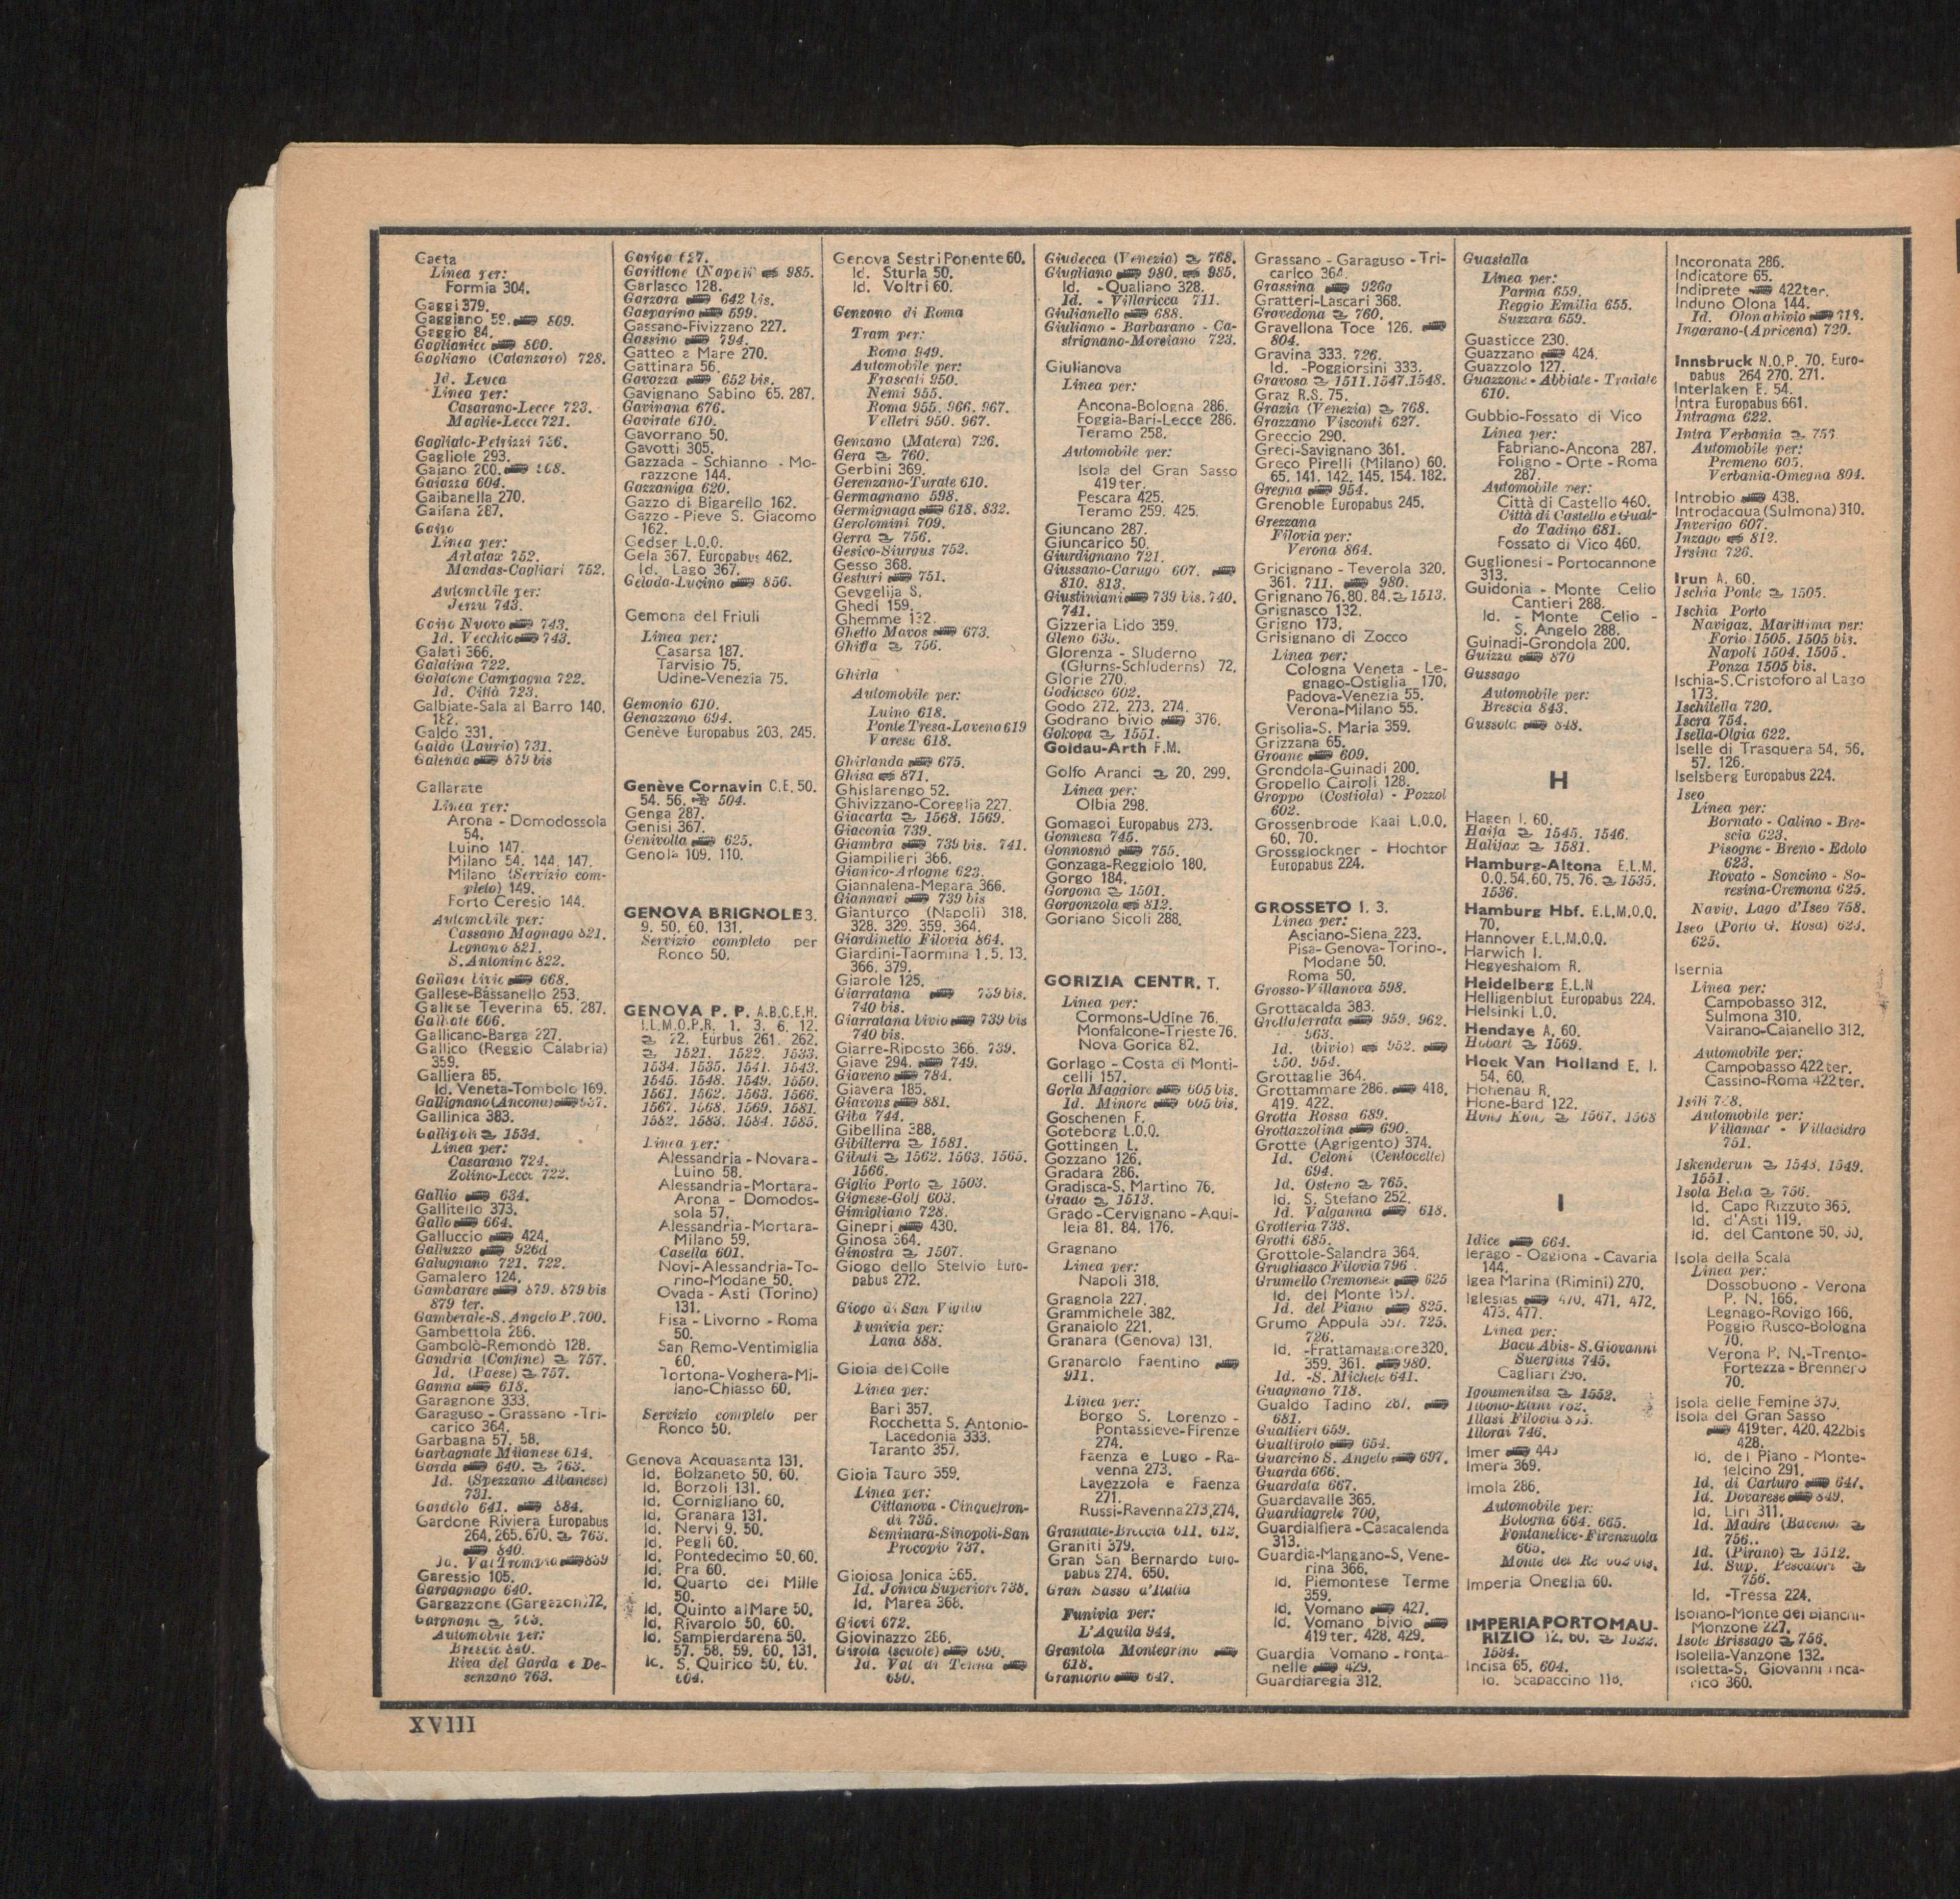 Gaeta
Linea per:
Formia 304.
Gaggi 379.
Gaggiano 59. 809.
Gaggio 84.
Gaglianico 800.
Gagliano (Catanzaro) 728.
Id. Leuca
Linea per:
Casarano-Lecce 723.
Maglie-Lecce 721.
Gagliato-Petrizzi 736.
Gagliole 293.
Gaiano 200.
Gaiazza 604.
Gaibanella 270.
Gaifana 287.
Gairo
Linea per:
Arbatax 752.
Mandas-Cagliari 752.
Automobile per:
Jerzu 743.
Gairo Nuovo 743.
Id. Vecchio 743.
Galati 366.
Galatina 722.
Galatone Campagna 722.
Id. Città 723.
Galbiate-Sala al Barro 140.
182.
Galdo 331.
Galdo (Lauria) 731.
Galenda 879 bis
Gallarate
Linea per:
Arona - Domodossola
54.
Luino 147.
Milano 54. 144. 147.
Milano (Servizio com-
pleto) 149.
Porto Ceresio 144.
Automobile per:
Cassano Magnago 821.
Legnano 821.
S. Antonino 822.
Gallare bivio 668.
Gallese-Bassanello 253.
Gallese Teverina 65. 287.
Galliate 606.
Gallicano-Barga 227.
Gallico (Reggio Calabria)
359.
Galliera 85.
Id. Veneta-Tombolo 169.
Gallignano (Ancona) 937.
Gallinica 383.
Gallipoli 1534.
Linea per:
Casarano 724.
Zolino-Lecce 722.
Gallio 634.
Gallitello 373.
Gallo 664.
Galluccio 424.
Galluzzo 926d
Galugnano 721. 722.
Gamalero 124.
Gambarare 879. 879 bis
879 ter.
Gamberale-S. Angelo P. 700.
Gambettola 286.
Gambolò-Remondò 128.
Gandria (Confine) 757.
Id. (Paese) 757.
Ganna 618.
Garagnone 333.
Garaguso - Grassano - Tri-
carico 364.
Garbagna 57. 58.
Garbagnate Milanese 614.
Garda 640. 763.
Id. (Spezzano Albanese)
731.
Gardolo 641. 884.
Gardone Riviera Europabus
264. 265. 670. 763.
840.
Id. Val Trompia 839
Garessio 105.
Gargagnago 640.
Gargazzone (Gargazon) 72.
Gargnano 763.
Automobile per:
Brescia 840.
Riva del Garda e De-
senzano 763.
Gariga 627.
Garittone (Napoli) 985.
Garlasco 128.
Garzara 642 bis.
Gasparina 599.
Gassano-Fivizzano 227.
Gassino 794.
Gatteo a Mare 270.
Gattinara 56.
Gavazza 652 bis.
Gavignano Sabino 65. 287.
Gavinana 676.
Gavirate 610.
Gavorrano 50.
Gavotti 305.
Gazzada - Schianno - Mo-
razzone 144.
Gazzaniga 620.
Gazzo di Bigarello 162.
Gazzo - Pieve S. Giacomo
162.
Gedser L.O.Q.
Gela 367. Europabus 462.
Id. Lago 367.
Gelada-Lucino 856.
Gemona del Friuli
Linea per:
Casarsa 187.
Tarvisio 75.
Udine-Venezia 75.
Gemonio 610.
Genazzano 694.
Genève Europabus 203. 245.
Genève Cornavin C.E. 50.
54. 56. 504.
Genga 287.
Genisi 367.
Genivolta 625.
Genola 109. 110.
GENOVA BRIGNOLE 3.
9. 50. 60. 131.
Servizio completo per
Ronco 50.
GENOVA P. P. A.B.C.E.H.
I.L.M.O.P.R. 1. 3. 6. 12.
22. Eurbus 261. 262.
1521. 1522. 1533.
1534. 1535. 1541. 1543.
1545. 1548. 1549. 1550.
1561. 1562. 1563. 1566.
1567. 1568. 1569. 1581.
1582. 1583. 1584. 1585.
Linea per:
Alessandria - Novara-
Luino 58.
Alessandria-Mortara-
Arona - Domodos-
sola 57.
Alessandria-Mortara-
Milano 59.
Casella 601.
Novi-Alessandria-To-
rino-Modane 50.
Ovada - Asti (Torino)
131.
Pisa - Livorno - Roma
50.
San Remo-Ventimiglia
60.
Tortona-Voghera-Mi-
lano-Chiasso 60.
Servizio completo per
Ronco 50.
Genova Acquasanta 131.
Id. Bolzaneto 50. 60.
Id. Borzoli 131.
Id. Cornigliano 60.
Id. Granara 131.
Id. Nervi 9. 50.
Id. Pegli 60.
Id. Pontedecimo 50. 60.
Id. Pra 60.
Id. Quarto dei Mille
50.
Id. Quinto al Mare 50.
Id. Rivarolo 50. 60.
Id. Sampierdarena 50.
57. 58. 59. 60. 131.
Id. S. Quirico 50. 60.
604.
Genova Sestri Ponente 60.
Id. Sturla 50.
Id. Voltri 60.
Genzano di Roma
Tram per:
Roma 949.
Automobile per:
Frascati 950.
Nemi 955.
Roma 955. 966. 967.
Velletri 950. 967.
Genzano (Matera) 726.
Gera 760.
Gerbini 369.
Gerenzano-Turate 610.
Germagnano 598.
Germignaga 618. 832.
Gerolomini 709.
Gerra 756.
Gesico-Siurgus 752.
Gesso 368.
Gesturi 751.
Gevgelija S.
Ghedi 159.
Ghemme 132.
Ghetto Mavos 673.
Ghiffa 756.
Ghirla
Automobile per:
Luino 618.
Ponte Tresa-Lavena 619
Varese 618.
Ghirlanda 675.
Ghisa 871.
Ghislarengo 52.
Ghivizzano-Coreglia 227.
Giacarta 1568. 1569.
Giaconia 739.
Giambra 739 bis. 741.
Giampilieri 366.
Gianico-Artogne 623.
Giannalena-Megara 366.
Giannavi 739 bis
Gianturco (Napoli) 318.
328. 329. 359. 364.
Giardinetto Filovia 864.
Giardini-Taormina 1. 5. 13.
366. 379.
Giarole 125.
Giarratana 739 bis.
740 bis.
Giarratana bivio 739 bis
740 bis.
Giarre-Riposto 366. 739.
Giave 294. 749.
Giaveno 784.
Giavera 185.
Giavons 881.
Giba 744.
Gibellina 388.
Gibilterra 1581.
Gibuti 1562. 1563. 1565.
1566.
Giglio Porto 1503.
Gignese-Golf 603.
Gimigliano 728.
Ginepri 430.
Ginosa 364.
Ginostra 1507.
Giogo dello Stelvio Euro-
pabus 272.
Giogo di San Vigilio
Funivia per:
Lana 888.
Gioia del Colle
Linea per:
Bari 357.
Rocchetta S. Antonio-
Lacedonia 333.
Taranto 357.
Gioia Tauro 359.
Linea per:
Cittanova - Cinquefron-
di 735.
Seminara-Sinopoli-San
Procopio 737.
Gioiosa Jonica 365.
Id. Jonica Superiore 738.
Id. Marea 368.
Giovi 672.
Giovinazzo 286.
Girola (scuole) 690.
Id. Val di Tenna
690.
Giudecca (Venezia) 768.
Giugliano 980. 985.
Id. - Qualiano 328.
Id. - Villaricca 711.
Giulianello 688.
Giuliano - Barbarano - Ca-
strignano-Morciano 723.
Giulianova
Linea per:
Ancona-Bologna 286.
Foggia-Bari-Lecce 286.
Teramo 258.
Automobile per:
Isola del Gran Sasso
419 ter.
Pescara 425.
Teramo 259. 425.
Giuncano 287.
Giuncarico 50.
Giurdignano 721.
Giussano-Carugo 607.
810. 813.
Giustiniani 739 bis. 740.
741.
Gizzeria Lido 359.
Gleno 638.
Glorenza - Sluderno
(Glurns-Schluderns) 72.
Glorie 270.
Godiasco 602.
Godo 272. 273. 274.
Godrano bivio 376.
Gokova 1551.
Goldau-Arth F.M.
Golfo Aranci 20. 299.
Linea per:
Olbia 298.
Gomagoi Europabus 273.
Gonnesa 745.
Gonnosnò 755.
Gonzaga-Reggiolo 180.
Gorgo 184.
Gorgona 1501.
Gorgonzola 812.
Goriano Sicoli 288.
GORIZIA CENTR. T.
Linea per:
Cormons-Udine 76.
Monfalcone-Trieste 76.
Nova Gorica 82.
Gorlago - Costa di Monti-
celli 157.
Gorla Maggiore 605 bis.
Id. Minore 605 bis.
Goschenen F.
Goteborg L.O.Q.
Gottingen L.
Gozzano 126.
Gradara 286.
Gradisca-S. Martino 76.
Grado 1513.
Grado-Cervignano - Aqui-
leia 81. 84. 176.
Gragnano
Linea per:
Napoli 318.
Gragnola 227.
Grammichele 382.
Granaiolo 221.
Granara (Genova) 131.
Granarolo Faentino
911.
Linea per:
Borgo S. Lorenzo -
Pontassieve-Firenze
274.
Faenza e Lugo - Ra-
venna 273.
Lavezzola e Faenza
271.
Russi-Ravenna 273, 274.
Grandate-Breccia 611. 612.
Graniti 379.
Gran San Bernardo Euro-
pabus 274. 650.
Gran Sasso d'Italia
Funivia per:
L'Aquila 944.
Grantola Montegrino
618.
Grantorto 647.
Grassano - Garaguso - Tri-
carico 364.
Grassina 926a
Gratteri-Lascari 368.
Gravedona 760.
Gravellona Toce 126.
804.
Gravina 333. 726.
Id. -Poggiorsini 333.
Gravosa 1511. 1547. 1548.
Graz R.S. 75.
Grazia (Venezia) 768.
Grazzano Visconti 627.
Greccio 290.
Greci-Savignano 361.
Greco Pirelli (Milano) 60.
65. 141. 142. 145. 154. 182.
Gregna 954.
Grenoble Europabus 245.
Grezzana
Filovia per:
Verona 864.
Gricignano - Teverola 320.
361. 711. 980.
Grignano 76. 80. 84. 1513.
Grignasco 132.
Grigno 173.
Grisignano di Zocco
Linea per:
Cologna Veneta - Le-
gnago-Ostiglia 170.
Padova-Venezia 55.
Verona-Milano 55.
Grisolia-S. Maria 359.
Grizzana 65.
Groane 609.
Grondola-Guinadi 200.
Gropello Cairoli 128.
Groppo (Costiola) - Pozzol
602.
Grossenbrode Kaai L.O.Q.
60. 70.
Grossglockner - Hochtor
Europabus 224.
GROSSETO 1. 3.
Linea per:
Asciano-Siena 223.
Pisa - Genova-Torino-.
Modane 50.
Roma 50.
Grosso-Villanova 598.
Grottacalda 383.
Grottaferrata 959. 962.
963.
Id. (bivio) 952.
950. 954.
Grottaglie 364.
Grottammare 286. 418.
419. 422.
Grotta Rossa 689.
Grottazzolina 690.
Grotte (Agrigento) 374.
Id. Celoni (Centocelle)
694.
Id. Osteno 765.
Id. S. Stefano 252.
Id. Valganna 618.
Grotteria 738.
Grotti 685.
Grottole-Salandra 364.
Grugliasco Filovia 796
Grumello Cremonese 625
Id. del Monte 157.
Id. del Piano 825.
Grumo Appula 357. 725.
726.
Id. -Frattamaggiore 320.
359. 361. 980.
Id. -S. Michele 641.
Guagnano 718.
Gualdo Tadino 287.
681.
Gualtieri 659.
Gualtirolo 654.
Guarcino S. Angelo 697.
Guarda 666.
Guardata 667.
Guardavalle 365.
Guardiagrele 700.
Guardialfiera - Casacalenda
313.
Guardia-Mangano-S. Vene-
rina 366.
Id. Piemontese Terme
359.
Id. Vomano 427.
Id. Vomano bivio
419 ter. 428. 429.
Guardia Vomano - Fonta-
nelle 429.
Guardiaregia 312.
Guastalla
Linea per:
Parma 659.
Reggio Emilia 655.
Suzzara 659.
Guasticce 230.
Guazzano 424.
Guazzolo 127.
Guazzone - Abbiate - Tradate
610.
Gubbio-Fossato di Vico
Linea per:
Fabriano-Ancona 287.
Foligno - Orte - Roma
287.
Automobile per:
Città di Castello 460.
Città di Castello e Gual-
do Tadino 681.
Fossato di Vico 460.
Guglionesi - Portocannone
313.
Guidonia - Monte Celio
Cantieri 288.
Id. - Monte Celio -
S. Angelo 288.
Guinadi-Grondola 200.
Guizza 870
Gussago
Automobile per:
Brescia 843.
Gussola 848.
H
Hagen I. 60.
Haifa 1545. 1546.
Halifax 1581.
Hamburg-Altona E.L.M.
O.Q. 54. 60. 75. 76. 1535.
1536.
Hamburg Hbf. E.L.M.O.Q.
70.
Hannover E.L.M.O.Q.
Harwich I.
Hegyeshalom R.
Heidelberg E.L.N
Helligenblut Europabus 224.
Helsinki L.O.
Hendaye A. 60.
Hobart 1569.
Hoek Van Holland E. I.
54. 60.
Hohenau R.
Hone-Bard 122.
Hong Kong 1567. 1568
I
Idice 664.
Ierago - Oggiona - Cavaria
144.
Igea Marina (Rimini) 270.
Iglesias 470. 471. 472.
473. 477.
Linea per:
Bacu Abis-S. Giovanni
Suergiu 745.
Cagliari 296.
Igoumenitsa 1552.
Ilbono-Elini 752.
Illasi Filovia
Illorai 746.
Imer
Imera 369.
Imola 286.
Automobile per:
Bologna 664. 665.
Fontanelice-Firenzuola
665.
Monte del Re 662 bis.
Imperia Oneglia 60.
IMPERIA PORTO MAU-
RIZIO 12. 60. 1522.
1534.
Incisa 65. 604.
Id. Scapaccino 118.
Incoronata 286.
Indicatore 65.
Indiprete 422 ter.
Induno Olona 144.
Id. Olona bivio 618.
Ingarano-(Apricena) 720.
Innsbruck N.O.P. 70. Euro-
pabus 264 270. 271.
Interlaken E. 54.
Intra Europabus 661.
Intragna 622.
Intra Verbania 756
Automobile per:
Premeno 605.
Verbania-Omegna 804.
Introbio 438.
Introdacqua (Sulmona) 310.
Inverigo 607.
Inzago 812.
Irsina 726.
Irun A. 60.
Ischia Ponte 1505.
Ischia Porto
Navigaz. Marittima per:
Forio 1505. 1505 bis.
Napoli 1504. 1505.
Ponza 1505 bis.
Ischia-S. Cristoforo al Lago
173.
Ischitella 720.
Iscra 754.
Isella-Olgia 622.
Iselle di Trasquera 54. 56.
57. 126.
Iselsberg Europabus 224.
Iseo
Linea per:
Bornato - Calino - Bre-
scia 623.
Pisogne - Breno - Edolo
623.
Rovato - Soncino - So-
resina-Cremona 625.
Navig. Lago d'Iseo 758.
Iseo (Porto G. Rosa) 623.
625.
Isernia
Linea per:
Campobasso 312.
Sulmona 310.
Vairano-Caianello 312.
Automobile per:
Campobasso 422 ter.
Cassino-Roma 422 ter.
Isili 728.
Automobile per:
Villamar - Villacidro
751.
Iskenderun 1543. 1549.
1551.
Isola Bella 756.
Id. Capo Rizzuto 365.
Id. d'Asti 119.
Id. del Cantone 50. 60.
Isola della Scala
Linea per:
Dossobuono - Verona
P. N. 166.
Legnago-Rovigo 166.
Poggio Rusco-Bologna
70.
Verona P. N.-Trento-
Fortezza - Brennero
70.
Isola delle Femine 373.
Isola del Gran Sasso
419 ter. 420. 422 bis
428.
Id. del Piano - Monte-
felcino 291.
Id. di Carturo 647.
Id. Dovarese 849.
Id. Liri 311.
Id. Madre (Baveno)
756..
Id. (Pirano) 1512.
Id. Sup. Pescatori
756.
Id. -Tressa 224.
Isolano-Monte dei Bianchi-
Monzone 227.
Isole Brissago 756.
Isolella-Vanzone 132.
Isoletta-S. Giovanni Inca-
rico 360.
XVIII